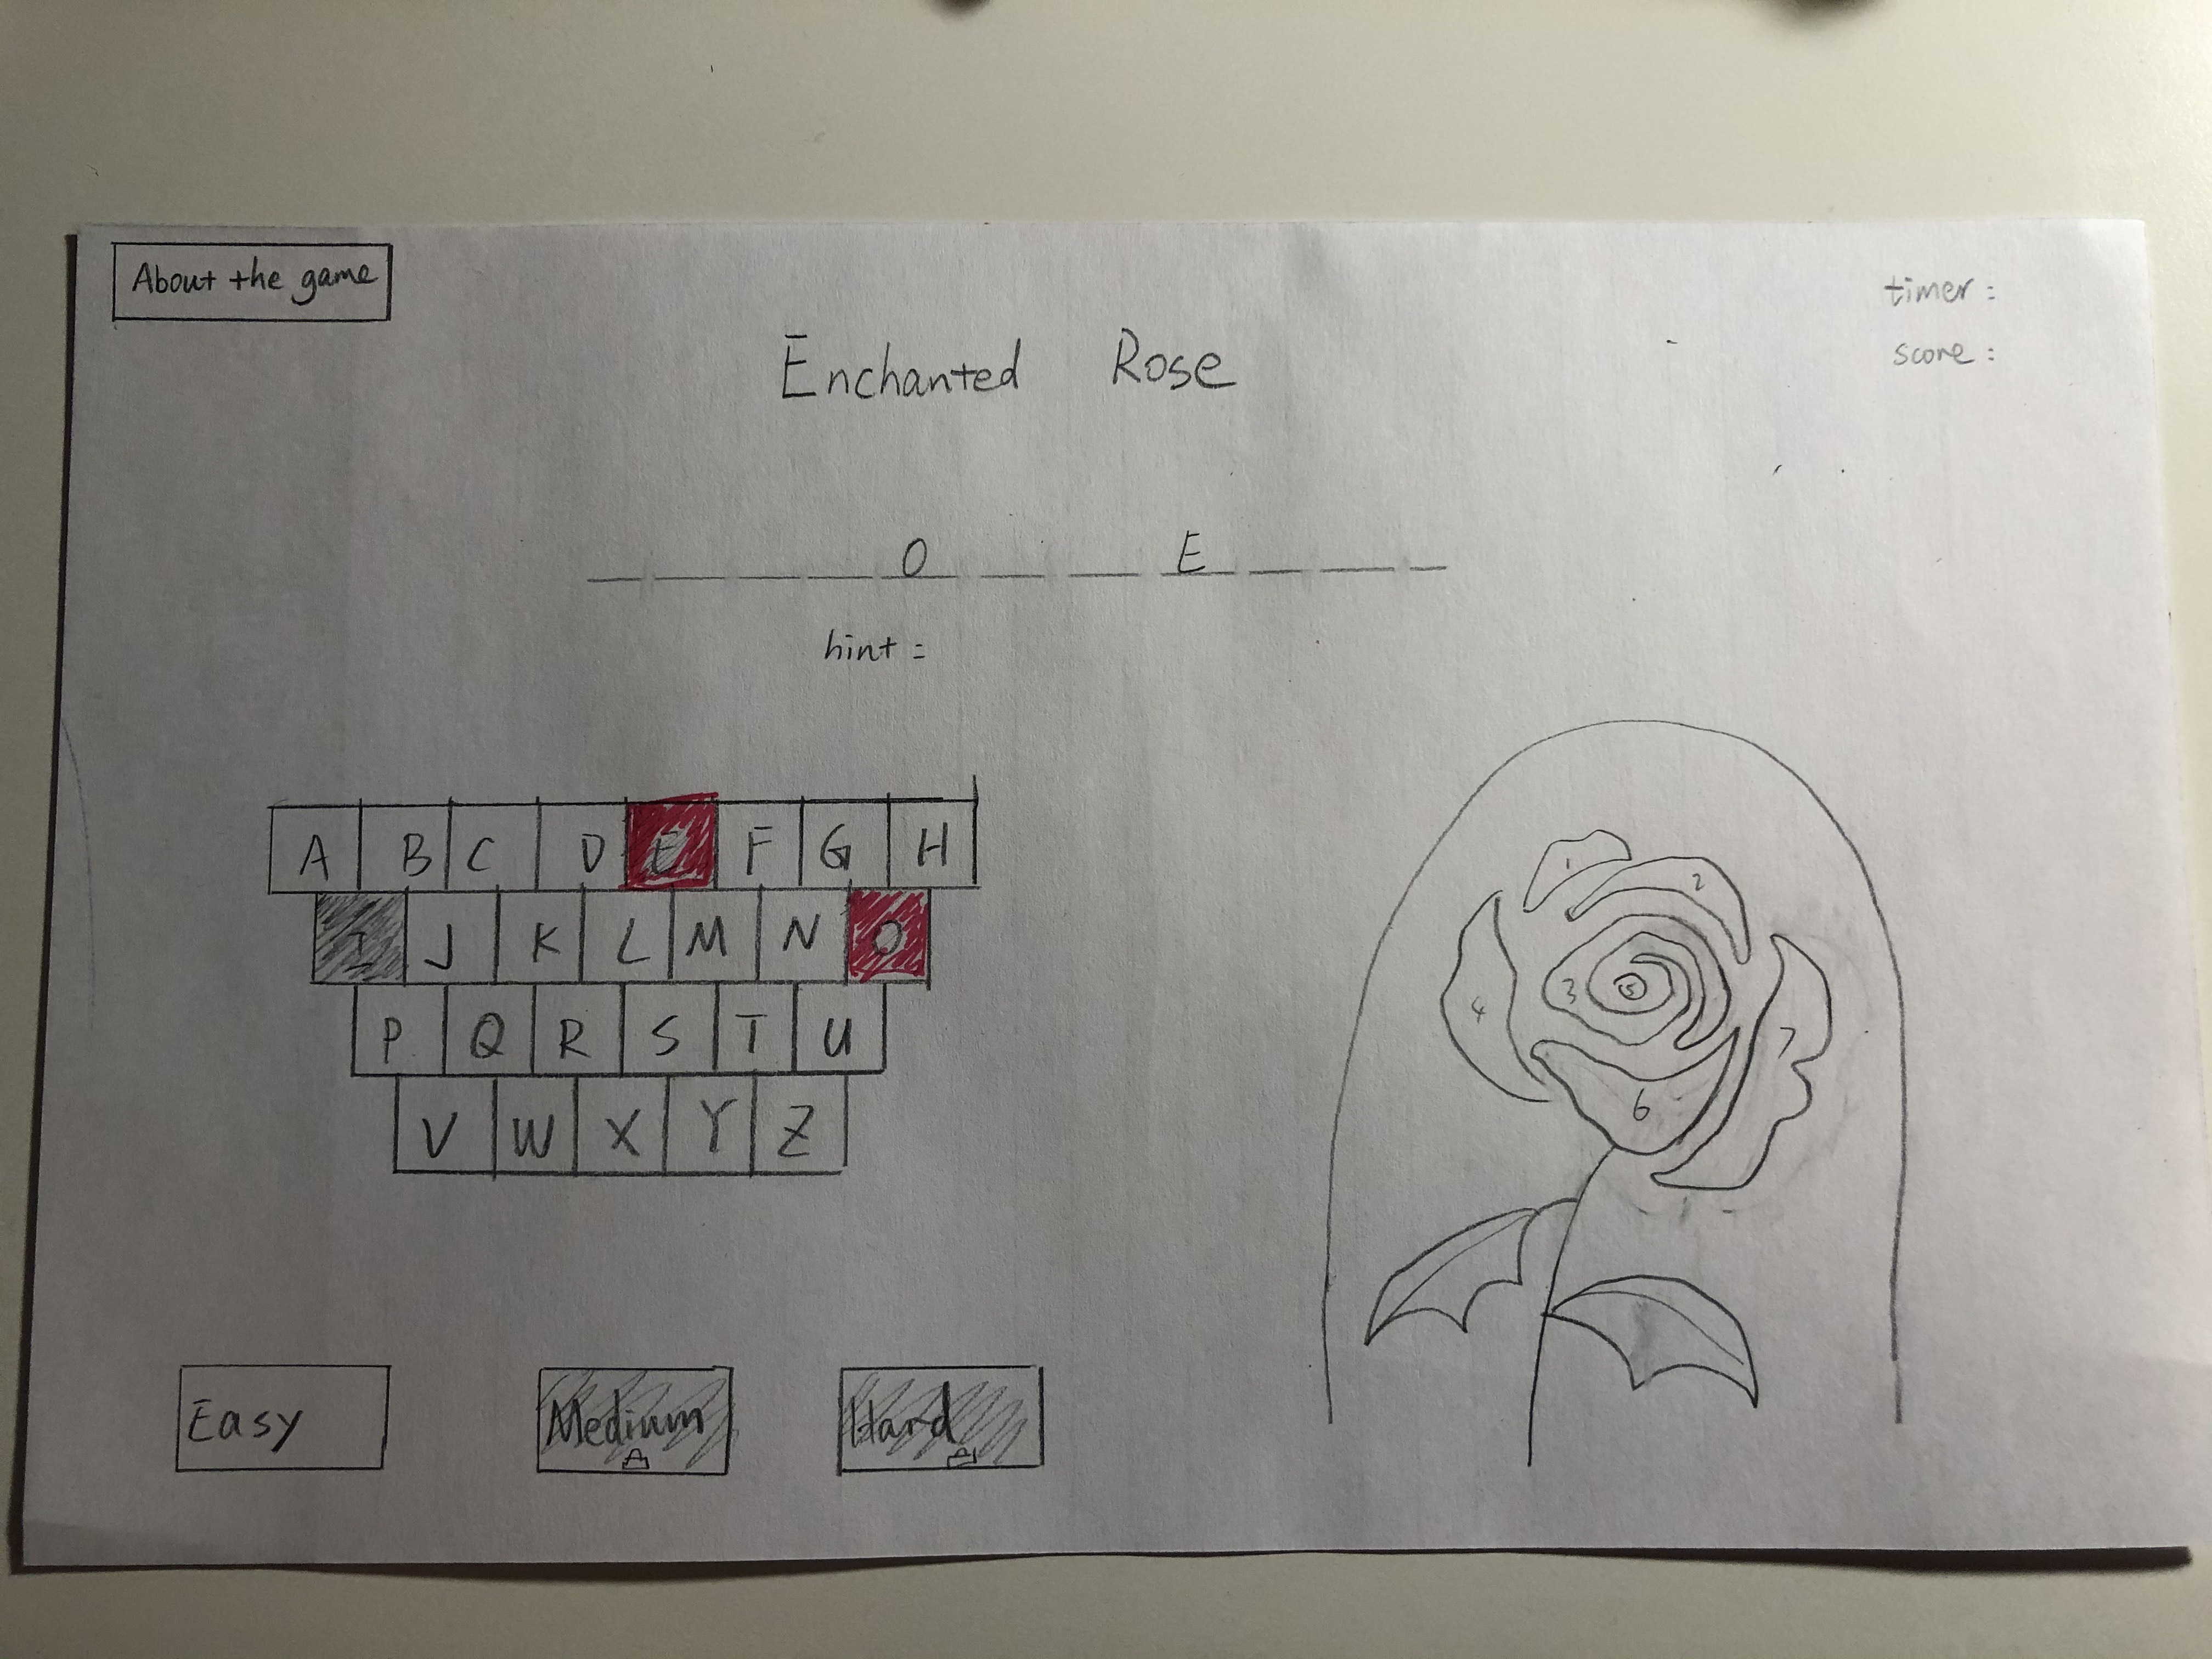 About the game
timer :
score :
Enchanted Rose
O E
hint :
A B C D E F G H
I J K L M N O
P Q R S T U
V W X Y Z
1 2
3 5
4 7
6
Easy Medium Hard